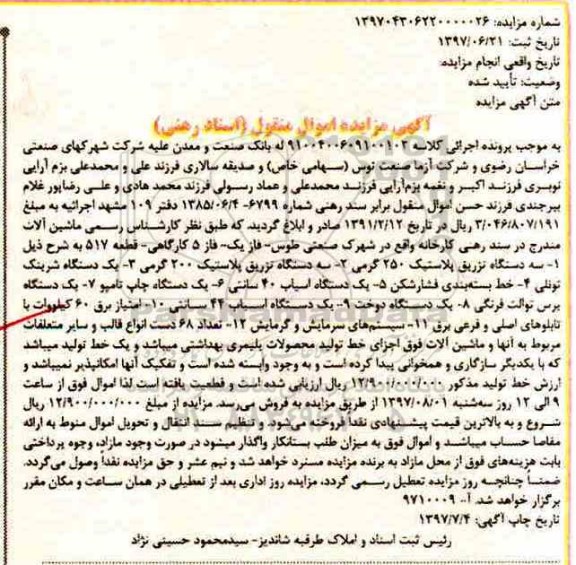 شماره مزایده: ۱۳۹۷۰۴۳۰۶۲۲۰۰۰۰۰۲۶
تاریخ ثبت: ۱۳۹۷/۰۶/۲۱
تاریخ واقعی انجام مزایده:
وضعیت: تأیید شده
متن آگهی مزایده
آگهی مزایده اموال منقول (اسناد رهنی)
به موجب پرونده اجرائی کلاسه ۹۱۰۰۴۰۰۶۰۹۱۰۰۱۰۳ له بانک صنعت و معدن علیه شرکت شهرکهای صنعتی
خراسان رضوی و شرکت آزما صنعت توس (سهامی خاص) و صدیقه سالاری فرزند علی و محمدعلی بزم آرایی
نوبری فرزند اکبر و نغمه بزم‌آرایی فرزند محمدعلی و عماد رسولی فرزند محمد هادی و علی رضاپور غلام
بیرجندی فرزند حسن اموال منقول برابر سند رهنی شماره ۶۷۹۹- ۱۳۸۵/۰۶/۴ دفتر ۱۰۹ مشهد اجرائیه به مبلغ
۳/۰۴۶/۸۰۷/۱۹۱ ریال در تاریخ ۱۳۹۱/۲/۱۲ صادر و ابلاغ گردید، که طبق نظر کارشناس رسمی ماشین آلات
مندرج در سند رهنی کارخانه واقع در شهرک صنعتی طوس- فاز یک- فاز ۵ کارگاهی- قطعه ۵۱۷ به شرح ذیل
۱- سه دستگاه تزریق پلاستیک ۲۵۰ گرمی ۲- سه دستگاه تزریق پلاستیک ۲۰۰ گرمی ۳- یک دستگاه شرینک
تونلی ۴- خط بسته‌بندی فشارشکن ۵- یک دستگاه آسیاب ۴۰ سانتی ۶- یک دستگاه چاپ تامپو ۷- یک دستگاه
پرس توالت فرنگی ۸- یک دستگاه دوخت ۹- یک دستگاه آسیاب ۴۴ سانتی ۱۰- امتیاز برق ۶۰ کیلووات با
تابلوهای اصلی و فرعی برق ۱۱- سیستم‌های سرمایش و گرمایش ۱۲- تعداد ۶۸ دست انواع قالب و سایر متعلقات
مربوط به آنها و ماشین آلات فوق اجزای خط تولید محصولات پلیمری بهداشتی میباشد و یک خط تولید میباشد
که با یکدیگر سازگاری و همخوانی پیدا کرده است و به وجود وابسته شده است و تفکیک آنها امکانپذیر نمیباشد و
ارزش خط تولید مذکور ۱۲/۹۰۰/۰۰۰/۰۰۰ ریال ارزیابی شده است و قطعیت یافته است لذا اموال فوق از ساعت
۹ الی ۱۲ روز سه‌شنبه ۱۳۹۷/۰۸/۰۱ از طریق مزایده به فروش می‌رسد. مزایده از مبلغ ۱۲/۹۰۰/۰۰۰/۰۰۰ ریال
شروع و به بالاترین قیمت پیشنهادی نقداً فروخته می‌شود و تنظیم سند انتقال و تحویل اموال منوط به ارائه
مفاصا حساب میباشد و اموال فوق به میزان طلب بستانکار واگذار میشود در صورت وجود مازاد، وجوه پرداختی
بابت هزینه‌های فوق از محل مازاد به برنده مزایده مسترد خواهد شد و نیم عشر و حق مزایده نقداً وصول می‌گردد.
ضمناً چنانچه روز مزایده تعطیل رسمی گردد، مزایده روز اداری بعد از تعطیلی در همان ساعت و مکان مقرر
برگزار خواهد شد. آ- ۹۷۱۰۰۰۹
تاریخ چاپ آگهی: ۱۳۹۷/۷/۴
رئیس ثبت اسناد و املاک طرقبه شاندیز- سیدمحمود حسینی نژاد